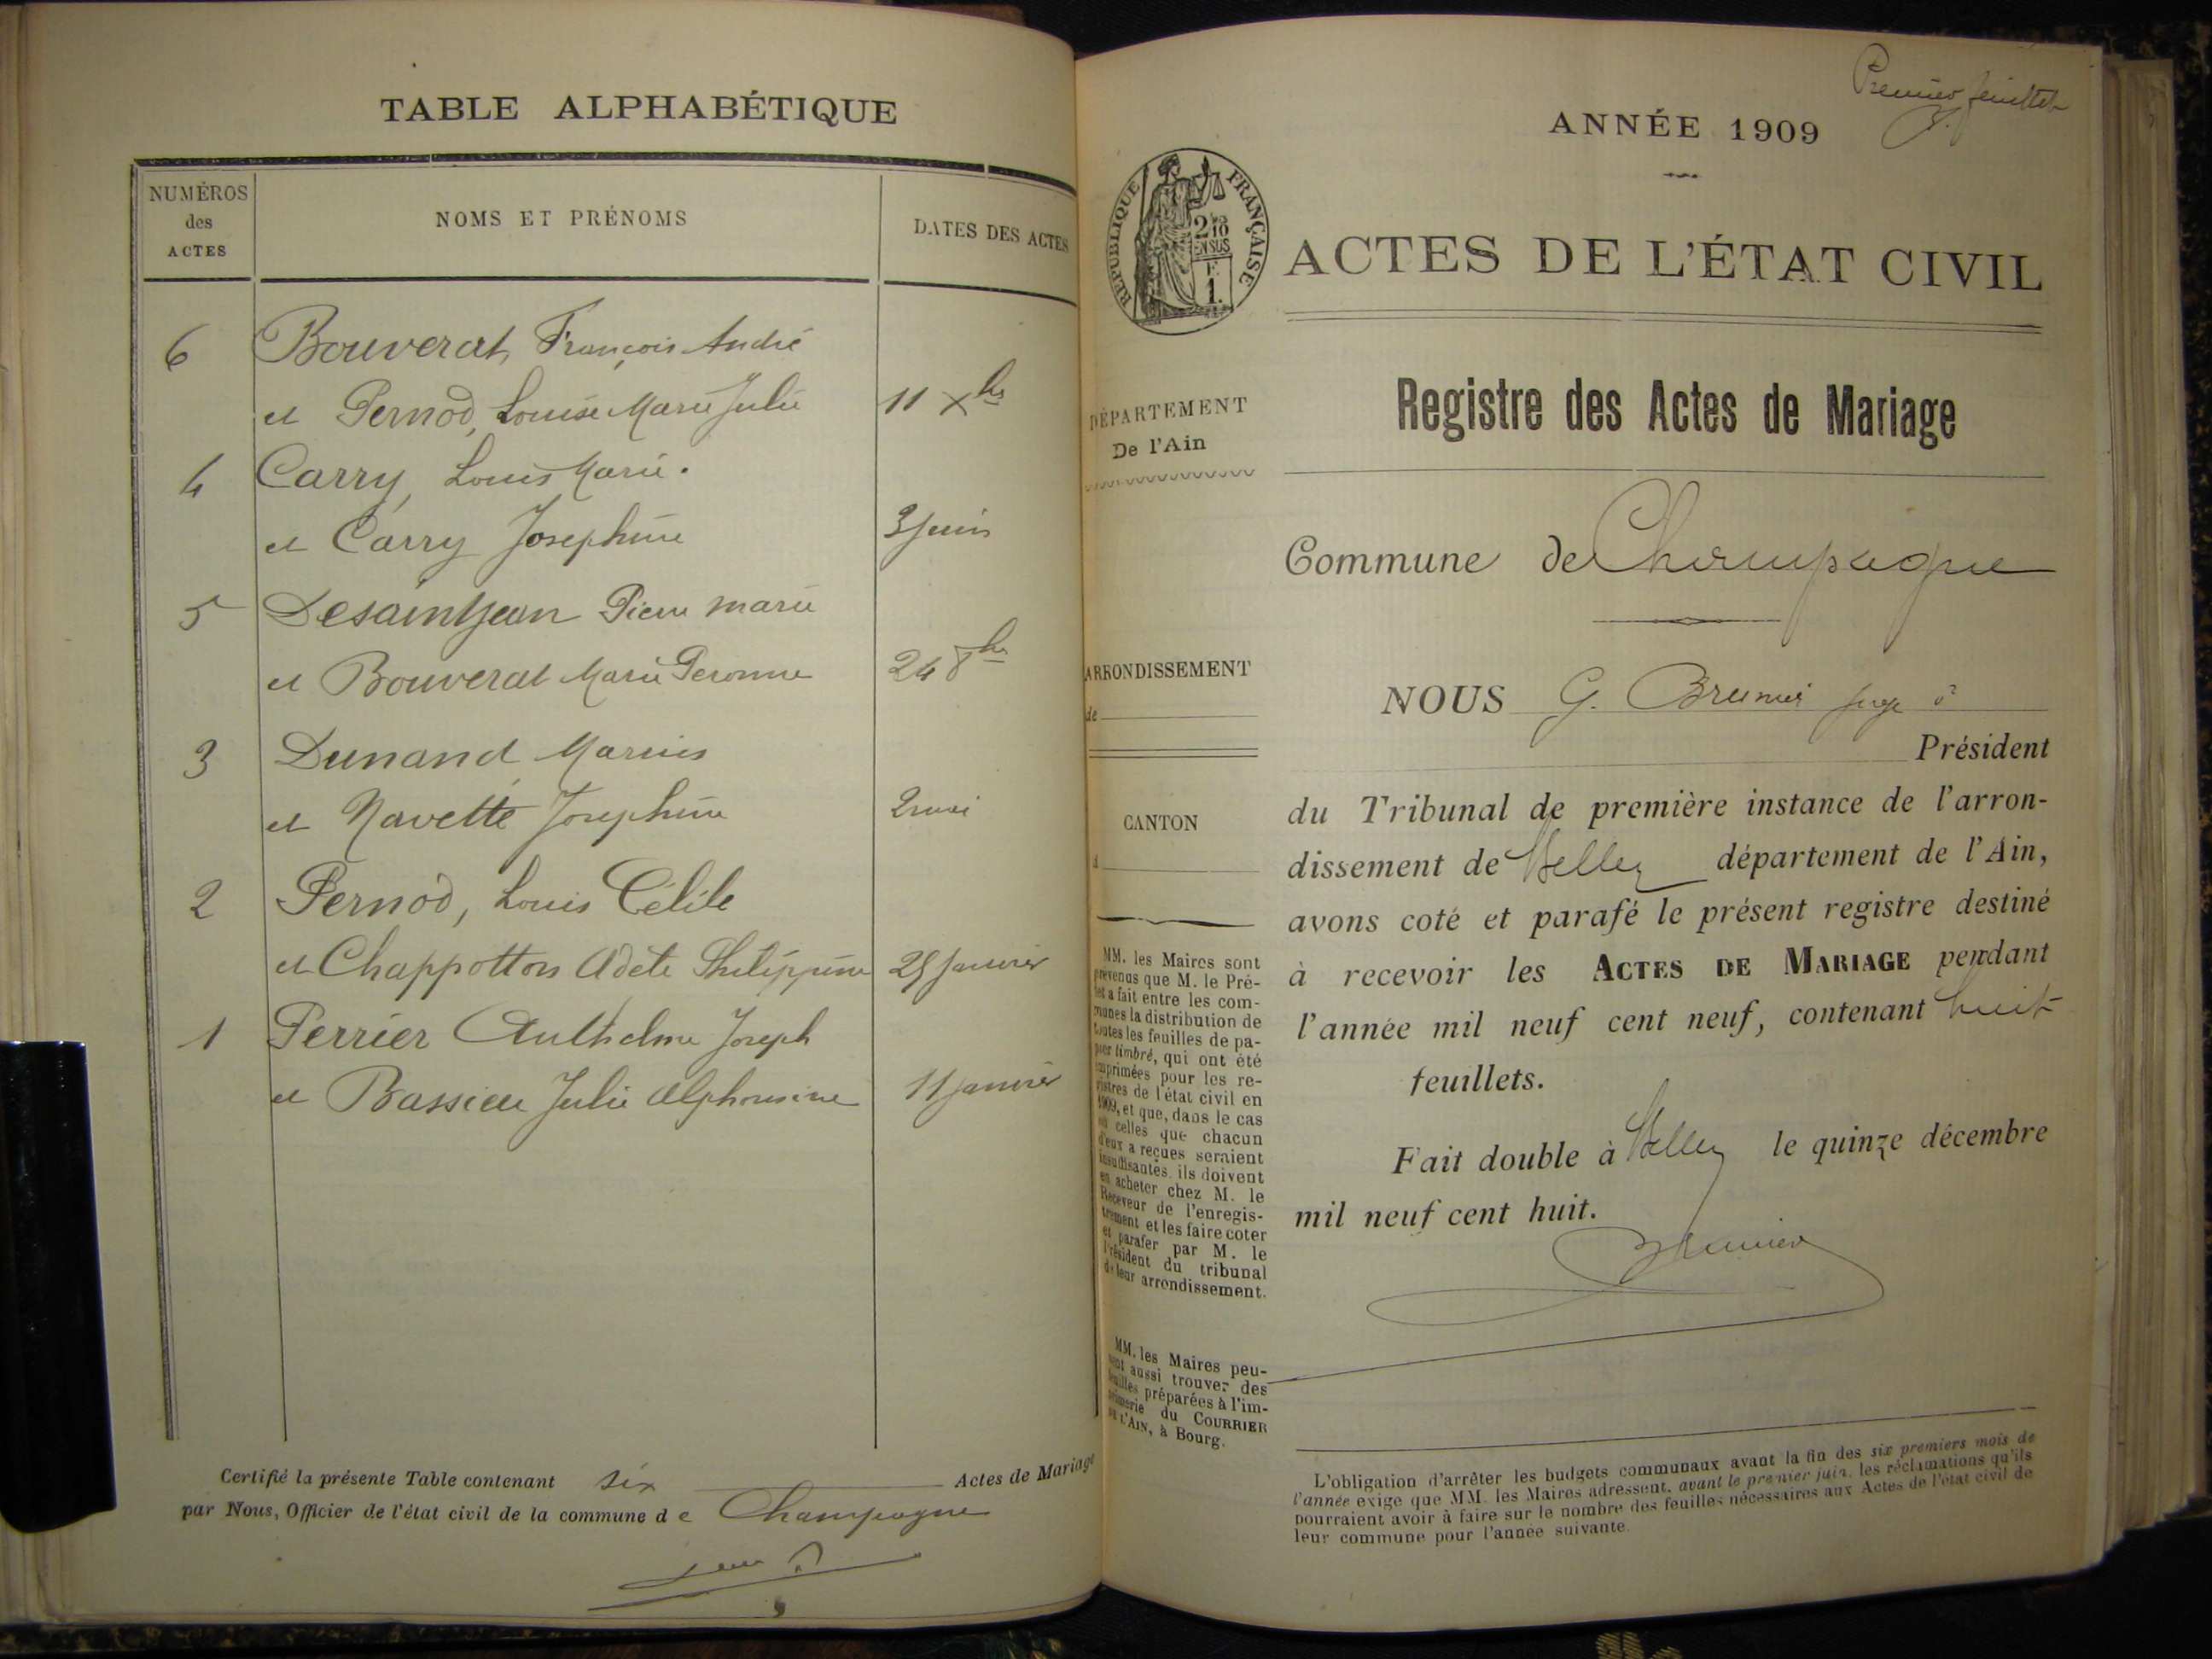 TABLE ALPHABÉTIQUE
NUMÉROS
des
ACTES
NOMS ET PRÉNOMS
DATES DES ACTES
6 Bouverat, François André
et Pernod, Louise Marie Julie 11 Xbre
4 Carry, Louis Marie.
et Carry Josephine 3 Juin
5 Desaintjean Pierre Marie
et Bouverat Marie Peronne 24 8bre
3 Dunand Marius
et Navette Josephine 2 mai
2 Pernod, Louis
et Chappotton Adèle Philippine Janvier
1 Perrier Anthelme Joseph
et Bassieu Julie Alphonsine 11 Janvier
Certifié la présente Table contenant six Actes de Mariage
par Nous, Officier de l'état civil de la commune de Champagne
Premier feuillet
ANNÉE 1909
RÉPUBLIQUE FRANÇAISE
2 10
EN SUS
F
1.
ACTES DE L'ÉTAT CIVIL
Registre des Actes de Mariage
DÉPARTEMENT
De l'Ain
Commune de Champagne
ARRONDISSEMENT
de
NOUS G. Brunier juge
Président
CANTON
d
du Tribunal de première instance de l'arron-
dissement de Belley département de l'Ain,
avons coté et parafé le présent registre destiné
à recevoir les ACTES DE MARIAGE pendant
l'année mil neuf cent neuf, contenant huit
feuillets.
Fait double à Belley le quinze décembre
mil neuf cent huit.
Brunier
MM. les Maires sont
prévenus que M. le Pré-
fet a fait entre les com-
munes la distribution de
toutes les feuilles de pa-
pier timbré, qui ont été
imprimées pour les re-
gistres de l'état civil en
1909, et que, dans le cas
où celles que chacun
d'eux a reçues seraient
insuffisantes, ils doivent
en acheter chez M. le
Receveur de l'enregis-
trement et les faire coter
et parafer par M. le
Président du tribunal
de leur arrondissement.
MM. les Maires peu-
vent aussi trouver des
feuilles préparées à l'im-
primerie du COURRIER
DE L'AIN, à Bourg.
L'obligation d'arrêter les budgets communaux avant la fin des six premiers mois de
l'année exige que MM. les Maires adressent, avant le premier juin, les réclamations qu'ils
pourraient avoir à faire sur le nombre des feuilles nécessaires aux Actes de l'état civil de
leur commune pour l'année suivante.